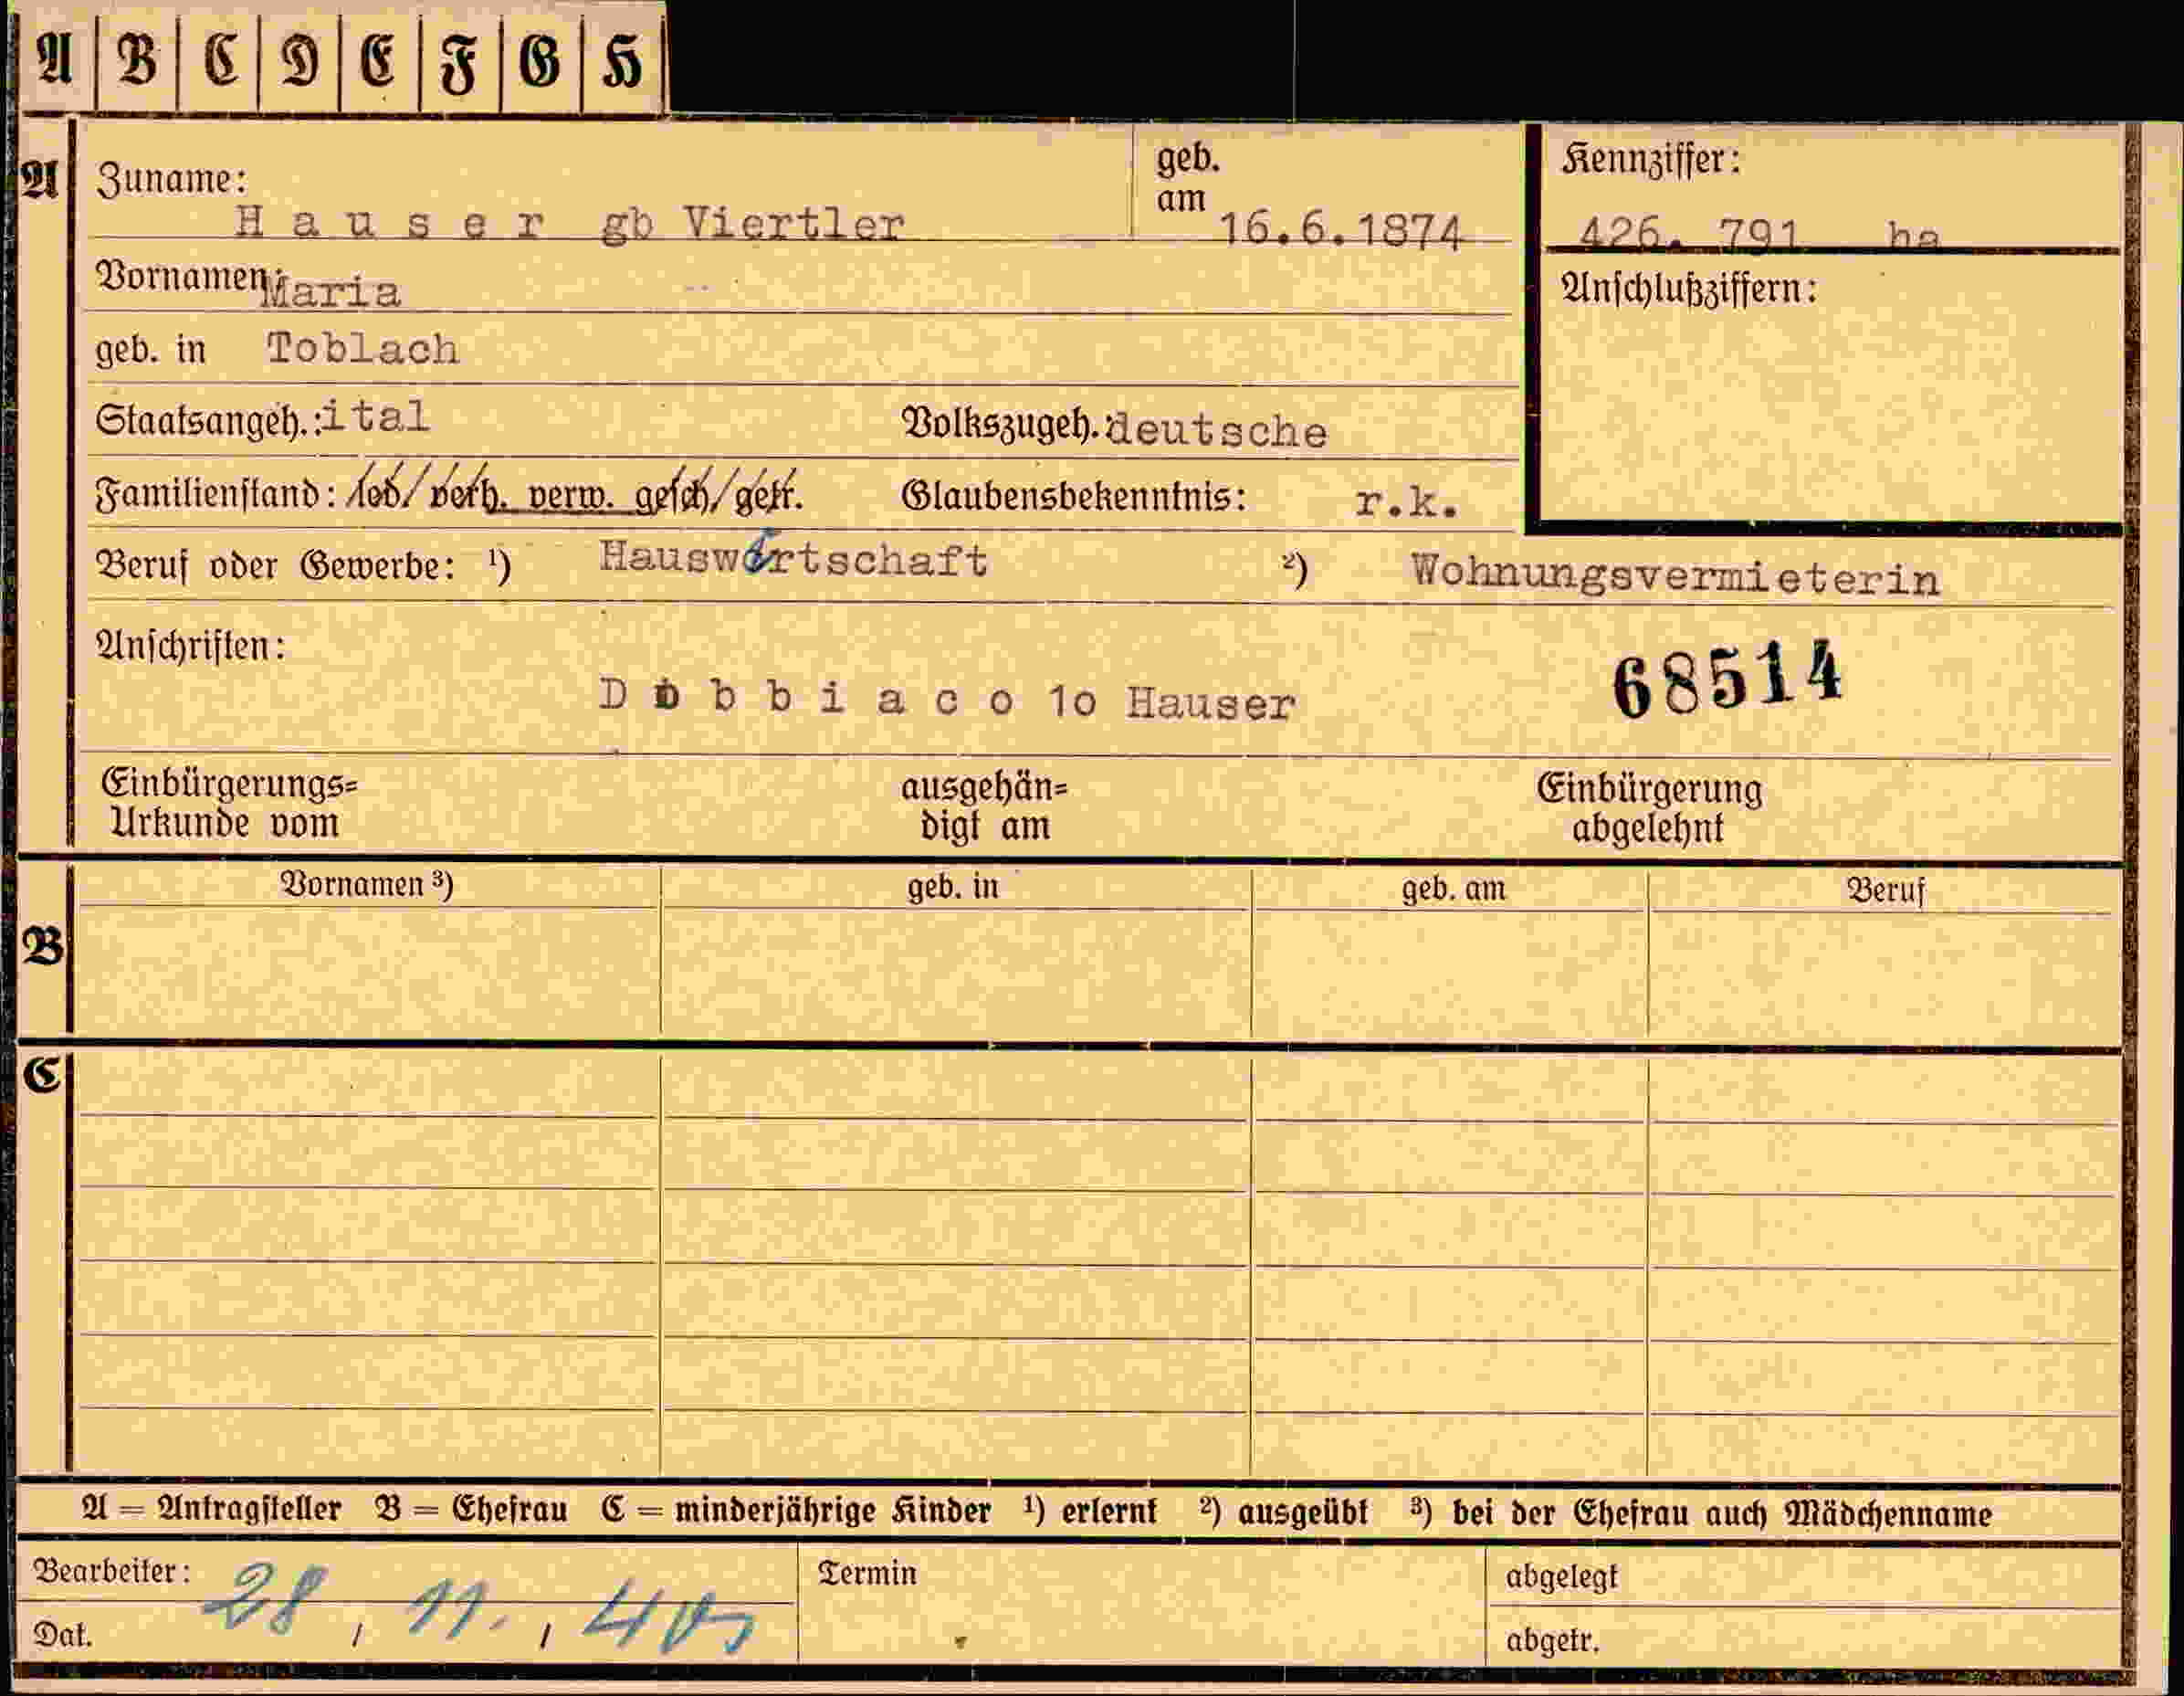 A B C D E F G H
A Zuname: geb. am Kennziffer:
H a u s e r gb Viertler 16.6.1874 426. 791 ha
Vornamen: Maria Anschlußziffern:
geb. in Toblach
Staatsangeh.: ital Volkszugeh.: deutsche
Familienstand: led. verh. verw. gesch. getr. Glaubensbekenntnis: r.k.
Beruf oder Gewerbe: ¹) Hauswirtschaft ²) Wohnungsvermieterin
Anschriften: 68514
D o b b i a c o 1o Hauser
Einbürgerungs= ausgehän= Einbürgerung
Urkunde vom digt am abgelehnt
Vornamen ³) geb. in geb. am Beruf
B
C
A = Antragsteller B = Ehefrau C = minderjährige Kinder ¹) erlernt ²) ausgeübt ³) bei der Ehefrau auch Mädchenname
Bearbeiter: Termin abgelegt
Dat. 28 / 11. / 40 abgetr.